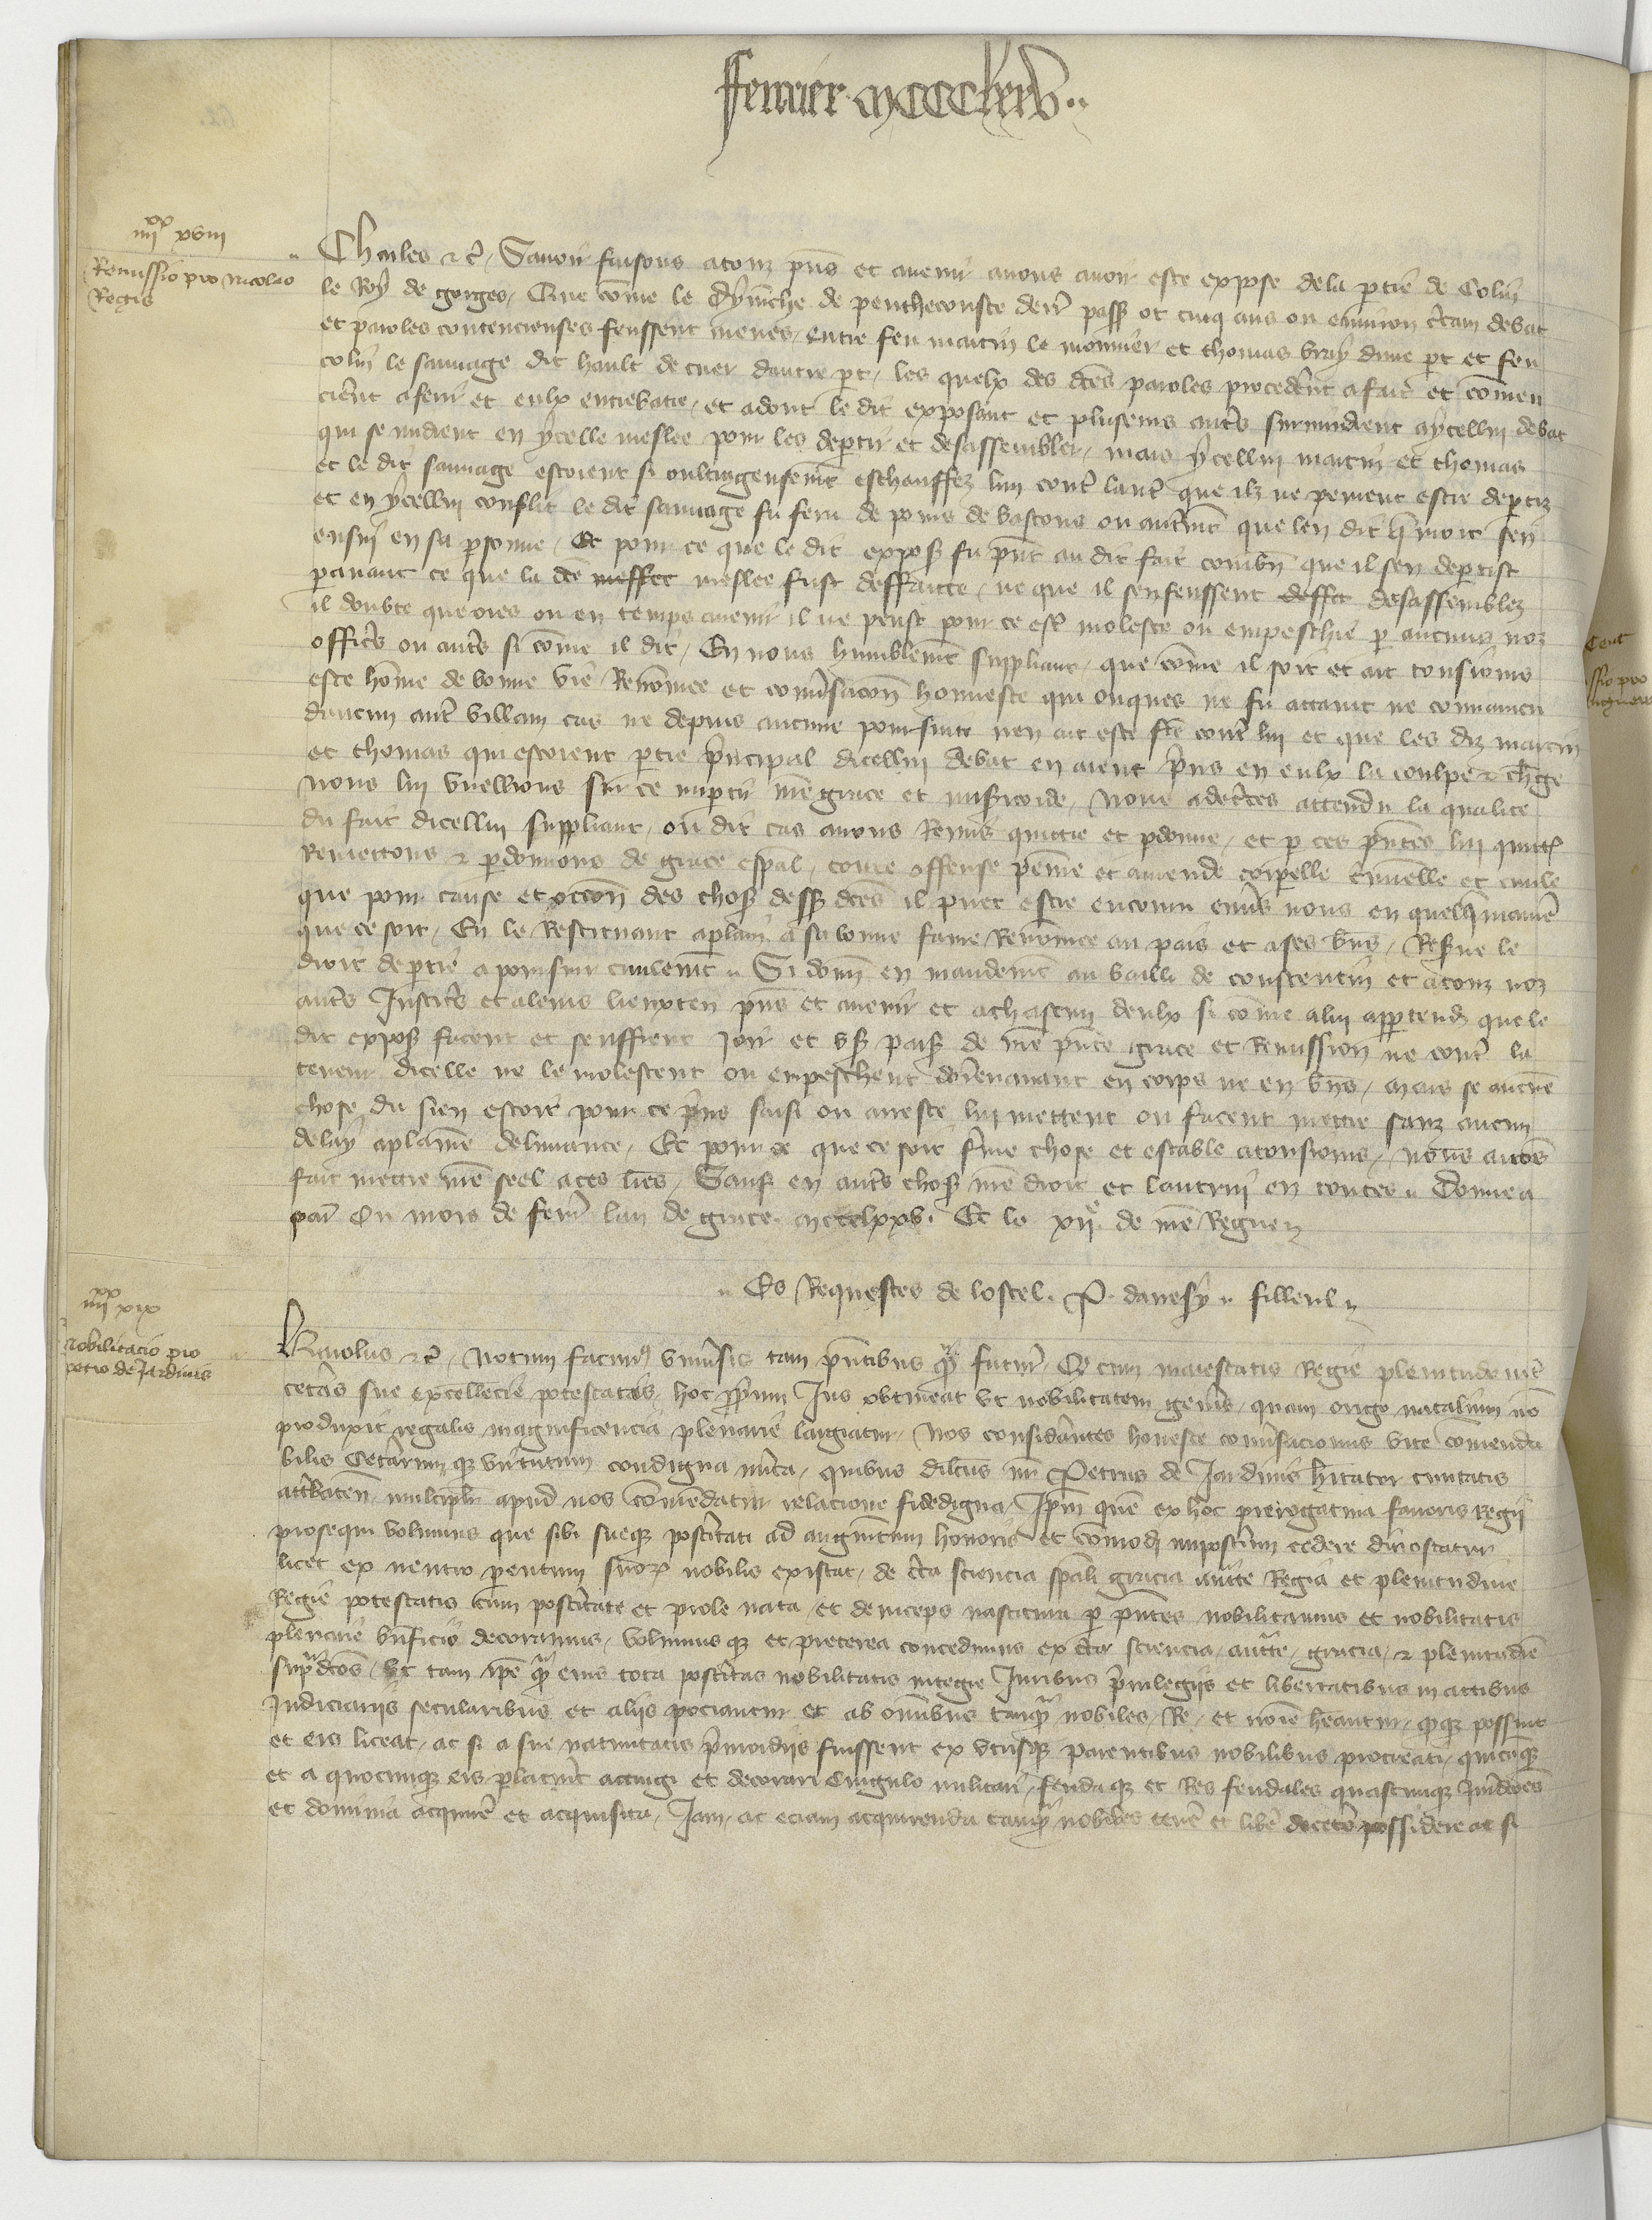 ffevrier mccclxxv
iiii xx xviii
Remissio pro Nicolao
Regis
Charles etc. Savoir faisons a touz pñs et avenir a nous avoir este expose de la ptie de Colin
le Roy de gorges, Que cõme le dymẽche de penthecouste derr̃ pass ot cinq ans ou environ c̃tain debat
et paroles contencieuses feussent meues, entre feu martin le monnier et thomas vray dune pt et feu
colin le sauvage dit hault de cuer dautre pt, les quelx des dc̃es paroles proceder̃nt a fait et cõmen
cier̃nt a ferir et eulx entrebatre, et adont le dit exposant et pluseurs aut̃s survindrent a ycellui debat
qui se midrent en ycelle meslee pour les deptir et desassembler, mais ycellui martin et thomas
et le dit sauvage estoient si oultrageusemt eschauffez lun cont̃ laut̃ que ilz ne peurent estre deptiz
et en ycellui conflit le dit sauvage fu feru de poins de bastons ou aut̃mt que len dit q̃ mort sen
ensui en sa psonne, Et pour ce que le dit expos fu pñt au dit fait combñ que il sen deptist
pavant ce que la dc̃e meffet meslee fust deffaitte, ne que il senfeussent deffet desassemblez
il doubte que ores ou en temps avenir il ne peust pour ce est̃ moleste ou empeschie p aucuns noz
offic̃rs ou aut̃s si cõme il dit, En nous humblemt suppliant, que cõme il soit et ait tousiours
este hõme de bonne vie Renõmee et conṽsacoñ honneste qui onques ne fu attaint ne convaincu
daucun aut̃ villain cas ne depuis aucune poursuite nen ait este fc̃e cont̃ lui et que les diz martin
et thomas qui estoient ptie pñcipal dicellui debat en aient pris en eulx la coulpe et chãge
nous lui vueillions sur ce impartir nr̃e grace et mis̃icorde, Nous adec̃tes attendu la qualite
du fait dicellui suppliant, ou dit cas avons Remis quictie et pdonne, et p ces pñtes lui quictõs
Remettons et pdonnons de grace esp̃al, toute offense peinne et amende corpelle c̃minelle et civile
que pour cause et occoñ des chos dess dc̃es il puet estre encouru enṽs nous en quelq̃ manier̃
que ce soit, En le Restituant aplain a sa bonne fame Renõmee au pais et a ses bñs, Res̃ve le
droit de ptie a poursuir civilemt Si donñ en mandemt au bailli de constentin et a touz noz
aut̃s Justic̃rs et a leurs lieuxteñ pñs et avenir et a chascun deulx si cõme a lui apptendr̃ que le
dit expos facent et seuffrent Joir et us̃ paisb̃ de nr̃e pñte grace et Remission ne cont̃ la
teneur dicelle ne le molestent ou empeschent dorenavant en corps ne en bñs, Mais se aucune
chose du sien estoit pour ce prins saisi ou arreste lui mettent ou facent mettre sanz aucun
delay a plaine delivrance, Et pour ce que ce soit ferme chose et estable a tousiours, Nous avons
fait mettre nr̃e seel a ces lr̃es, Sauf en aut̃s chos nr̃e droit et lautruy en toutes Donne a
par̃ Ou mois de fevr̃ lan de grace mccclxxv. Et le xiie de nr̃e Regne
Es Requestes de lostel. P. damesy filleul
iiii xx xix
Nobilitacio pro
petro de Jardinis
Karolus etc. Notum facimus uniṽsis tam pñtibus q̃ futuris, Q cum maiestatis Regie plenitudo int̃
cet̃as sue excellencie potestates, hoc pprium Jus obtineat ut nobilitatem gen̄is, quam origo natalium nõ
produxit regalis magnificencia plenarie largiatur, Nos considerantes honeste conṽsacionis vite cõmenda
bilis cet̃arumq virtutum condigna merita, quibus dilc̃us nr̃ Petrus de Jardinis h̃itator civitatis
attrebateñ. multiplr̃ apud nos cõmendatur relacione fidedigna, Ip̃m quẽ ex hoc prerogativa favoris Regii
prosequi volumus que sibi sueq post̃itati ad augmẽtum honoris et cõmodi impost̃um cedere dinoscatur
licet ex neutro parentum suorum nobilis existat, de c̃ta sciencia sp̃ali gracia auc̃te Regia et plenitudine
Regie potestatis cum post̃itate et prole nata et deinceps nascitura p pñtes nobilitamus et nobilitatis
plenarie bñficio decoramus, Volumus q et preterea concedimus ex c̃ta sciencia, auc̃te, gracia, et plenitudiẽ
sup̃dc̃is, Ut tam ip̃e q̃ eius tota post̃itas nobilitatis integre Juribus p̃vilegiis et libertatibus in actibus
Judiciariis secularibus et aliis pociantur et ab om̃ibus tanq̃ nobiles, Re, et noĩe h̃eantur, possint
et eis liceat, ac si a sue nativitatis p̃mordiis fuissent ex utrisq parentibus nobilibus procreati, quicq
et a quocumque eis placu̇it accingi et decorari Cingulo militari, feuda q et Res feudales quascumque Jur̃dicc̃oes
et dominia acquirẽ et acquisita, Jam, ac eciam acquirenda tanq̃ nobiles tenẽ et lib̃e decet̃o possidere ac si
Cent